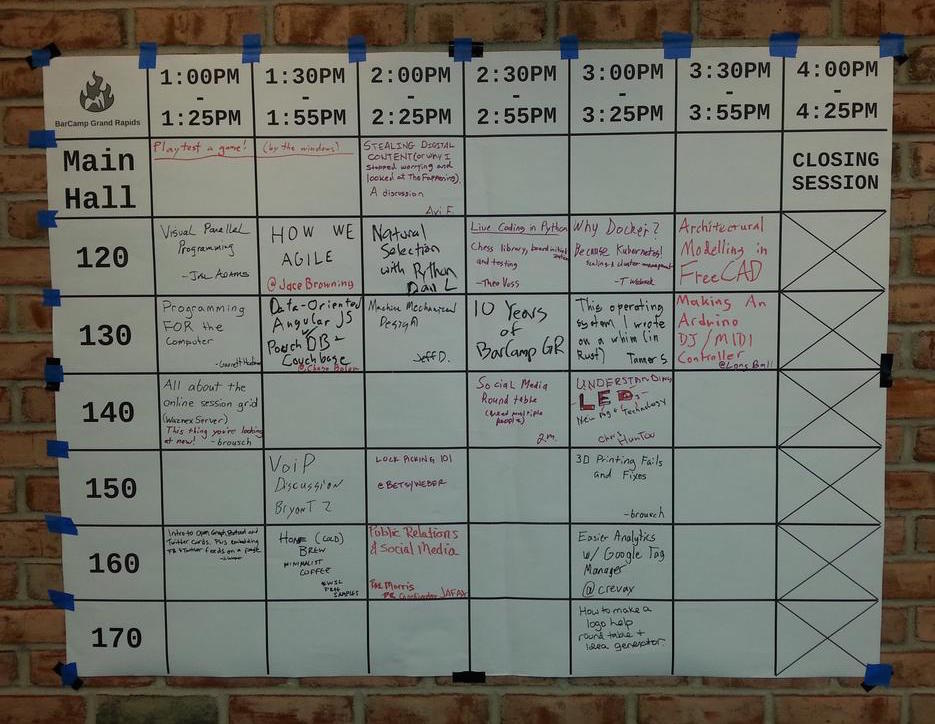 BarCamp Grand Rapids
1:00PM
-
1:25PM
1:30PM
-
1:55PM
2:00PM
-
2:25PM
2:30PM
-
2:55PM
3:00PM
-
3:25PM
3:30PM
-
3:55PM
4:00PM
-
4:25PM
Main
Hall
Playtest a game!
(by the windows)
STEALING DIGITAL
CONTENT (or why I
stopped worrying and
looked at The Fappening)
A discussion
Avi F.
CLOSING
SESSION
120
Visual Parallel
Programming
- ADAMS
HOW WE
AGILE
@Jace Browning
Natural
Selection
with Python
Dan L
Live Coding in Python
Chess library,
and testing
-Theo Voss
Why Docker?
Because Kubernetes!
Scaling & cluster
Architectural
Modelling in
FreeCAD
130
Programming
FOR the
Computer
Data-Oriented
Angular JS
PouchDB -
Couchbase
Machine Mechanical
Design
Jeff D.
10 Years
of
BarCamp GR
This operating
system I wrote
on a whim (in
Rust) Tamer S
Making An
Arduino
DJ/MIDI
Controller
140
All about the
online session grid
(Server)
This thing you're looking
at now! -brousch
Social Media
Round table
(need multiple
people)
UNDERSTANDING
LEDs
New Technology
Chris
150
VoiP
Discussion
Bryant Z
LOCK PICKING 101
@BETSYWEBER
3D Printing Fails
and Fixes
-brousch
160
Intro to Open Graph, and
Twitter Cards. Plus embedding
FB & Twitter feeds on a page
HOME (COLD)
BREW
MINIMALIST
COFFEE
FREE
SAMPLES
Public Relations
& Social Media
Morris
PR Coordinator JAFAX
Easier Analytics
w/ Google Tag
Manager
@crevax
170
How to make a
logo help
round table +
idea generator.